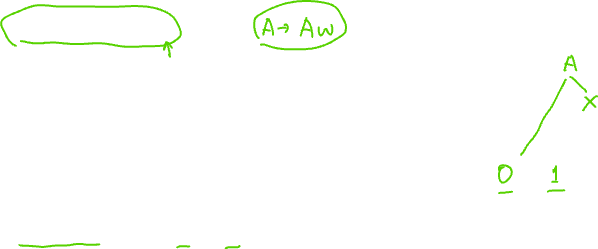 A → Aw
A
x
0 1